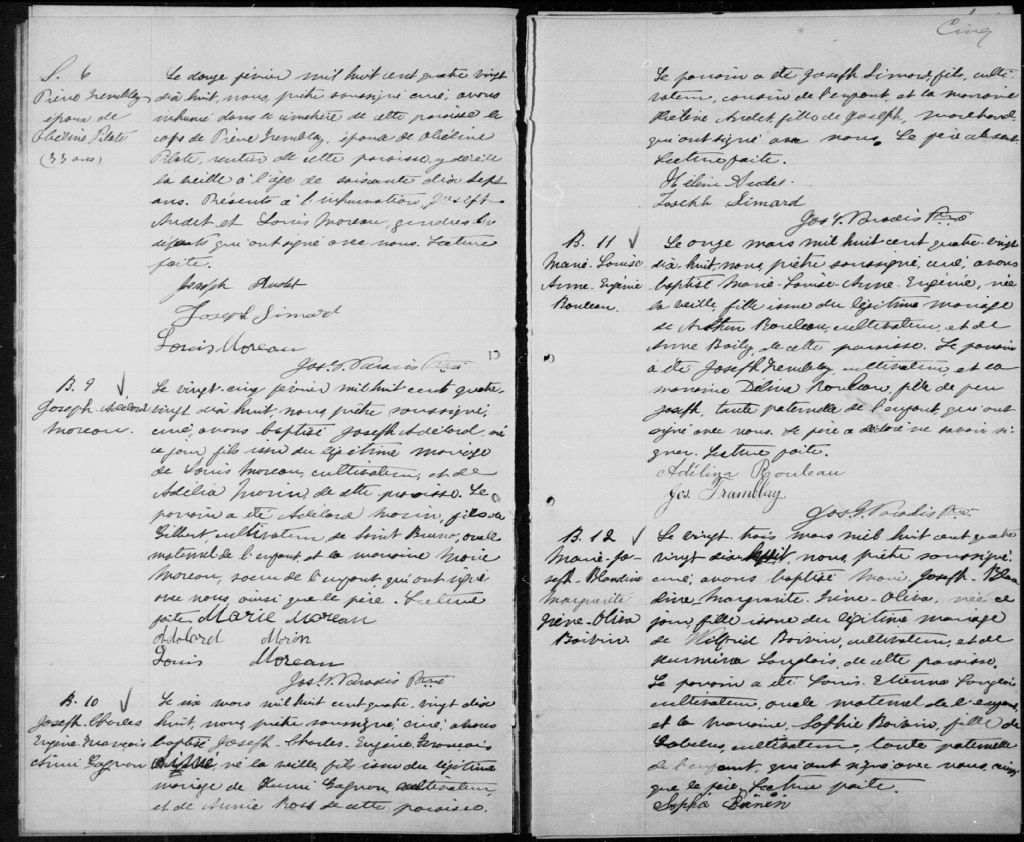 S. 6
Pierre Tremblay
époux de
Obéline Pilote
(77 ans)
Le douze février mil huit cent quatre vingt
dix huit, nous, prêtre soussigné, curé, avons
inhumé dans le cimetière de cette paroisse le
corps de Pierre Tremblay, époux de Obéline
Pilote, rentier de cette paroisse, y décédé
la veille à l'âge de soixante dix sept
ans. Présents à l'inhumation, Joseph
Audet et Louis Moreau, gendres du
défunt qui ont signé avec nous. Lecture
faite.
Joseph Audet
Joseph Simard
Louis Moreau
Jos. N. Paradis Ptre
B. 9
Joseph-Adélard
Moreau.
Le vingt-cinq février mil huit cent quatre-
vingt dix huit, nous prêtre soussigné,
curé, avons baptisé Joseph Adélard, né
ce jour, fils issu du légitime mariage
de Louis Moreau, cultivateur, et de
Adélia Morin, de cette paroisse. Le
parrain a été Adélard Morin, fils de
Gilbert, cultivateur, de Saint Bruno, oncle
maternel de l'enfant, et la marraine Marie
Moreau, soeur de l'enfant, qui ont signé
avec nous, ainsi que le père. Lecture
faite. Marie Moreau
Adelard Morin
Louis Moreau
Jos. N. Paradis Ptre
B. 10
Joseph-Charles
Eugène-François
Aimé Gagnon
Le six mars mil huit cent quatre-vingt dix
huit, nous, prêtre soussigné, curé, avons
baptisé Joseph-Charles-Eugène-François
Aimé, né la veille, fils issu du légitime
mariage de Henri Gagnon, cultivateur,
et de Annie Ross de cette paroisse.
Cinq
Le parrain a été Joseph Simard, fils, culti-
vateur, cousin de l'enfant, et la marraine
Hélène Audet, fille de Joseph, marchand,
qui ont signé avec nous. Le père absent.
Lecture faite.
Hélène Audet
Joseph Simard
Jos. N. Paradis Ptre
B. 11
Marie-Louise
Anne-Eugénie
Bouleau.
Le onze mars mil huit cent quatre-vingt
dix-huit, nous, prêtre soussigné, curé, avons
baptisé Marie-Louise-Anne-Eugénie, née
la veille, fille issue du légitime mariage
de Arthur Rouleau, cultivateur, et de
Anne Baily, de cette paroisse. Le parrain
a été Joseph Tremblay, cultivateur, et la
marraine Delina Rouleau, fille de feu
Joseph, tante paternelle de l'enfant, qui ont
signé avec nous. Le père a déclaré ne savoir si-
gner. Lecture faite.
Adélina Rouleau
Jos Tramblay
Jos. N. Paradis Ptre
B. 12
Marie-Jo-
seph-Blandine
Marguerite
Irène-Oliva
Boivin
Le vingt-trois mars mil huit cent quatre
vingt dix huit, nous, prêtre soussigné,
curé, avons baptisé Marie Joseph-Blan-
dine-Marguerite-Irène-Oliva, née ce
jour, fille issue du légitime mariage
de Wilfrid Boivin, cultivateur, et de
Langlois, de cette paroisse.
Le parrain a été Louis-Etienne Langlois,
cultivateur, oncle maternel de l'enfant,
et la marraine, Sophie Boivin, fille de
cultivateur, tante paternelle
de l'enfant, qui ont signé avec nous, ainsi
que le père. Lecture faite.
Sophia Boivin